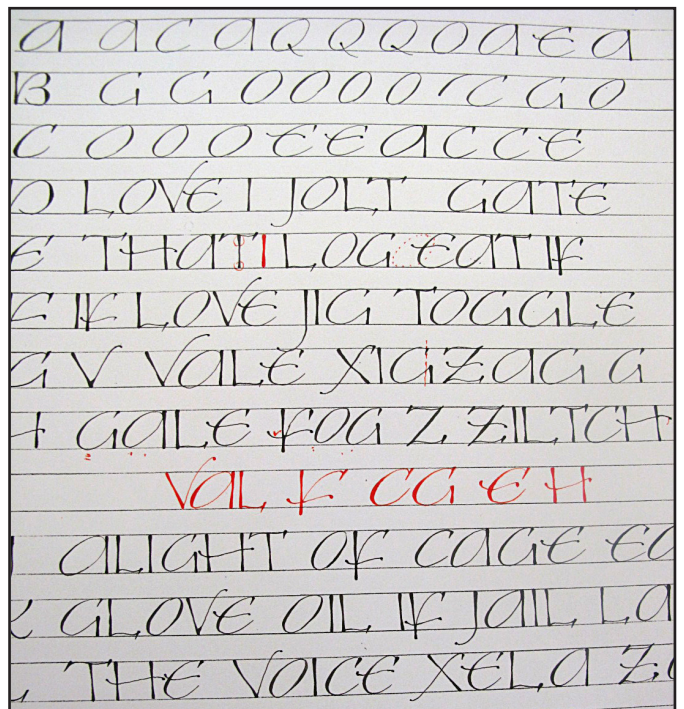 A A C A Q Q Q O A E A
B G G O O O O C G O
C O O O E E A C C E
D LOVE I JOLT GATE
E THAT I LOG EAT IF
F IF LOVE JIG TOGGLE
G V VALE XIGZAG G
H GALE FOG Z ZILTCH
VAL F CG E H
ALIGHT OF CAGE
GLOVE OIL IF JAIL LA
THE VOICE XELA